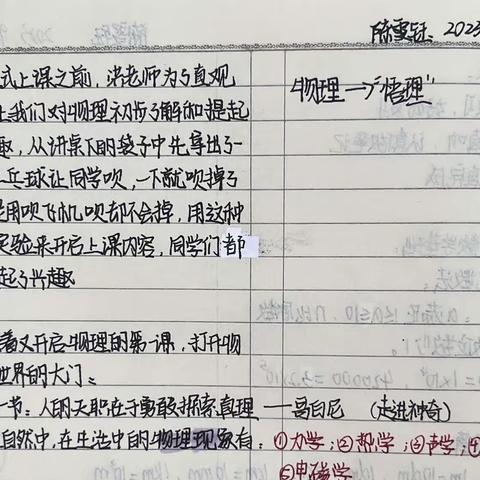 陈雯钰. 2023
式上课之前,洪老师为了直观
让我们对物理初步了解和提起
趣,从讲桌下的袋子中先拿出了一
乒乓球让同学吹,一下就吹掉了
是用吹飞机吹却不会掉,用这种
实验来开启上课内容,同学们都
起了兴趣
物理→"悟理"
着又开启物理的第一课,打开物
世界的大门。
一节:人的天职在于勇敢探索真理——哥白尼 (走进神奇)
自然中,在生活中的物理现象有:①力学;②热学;③声学;④
⑤电磁学